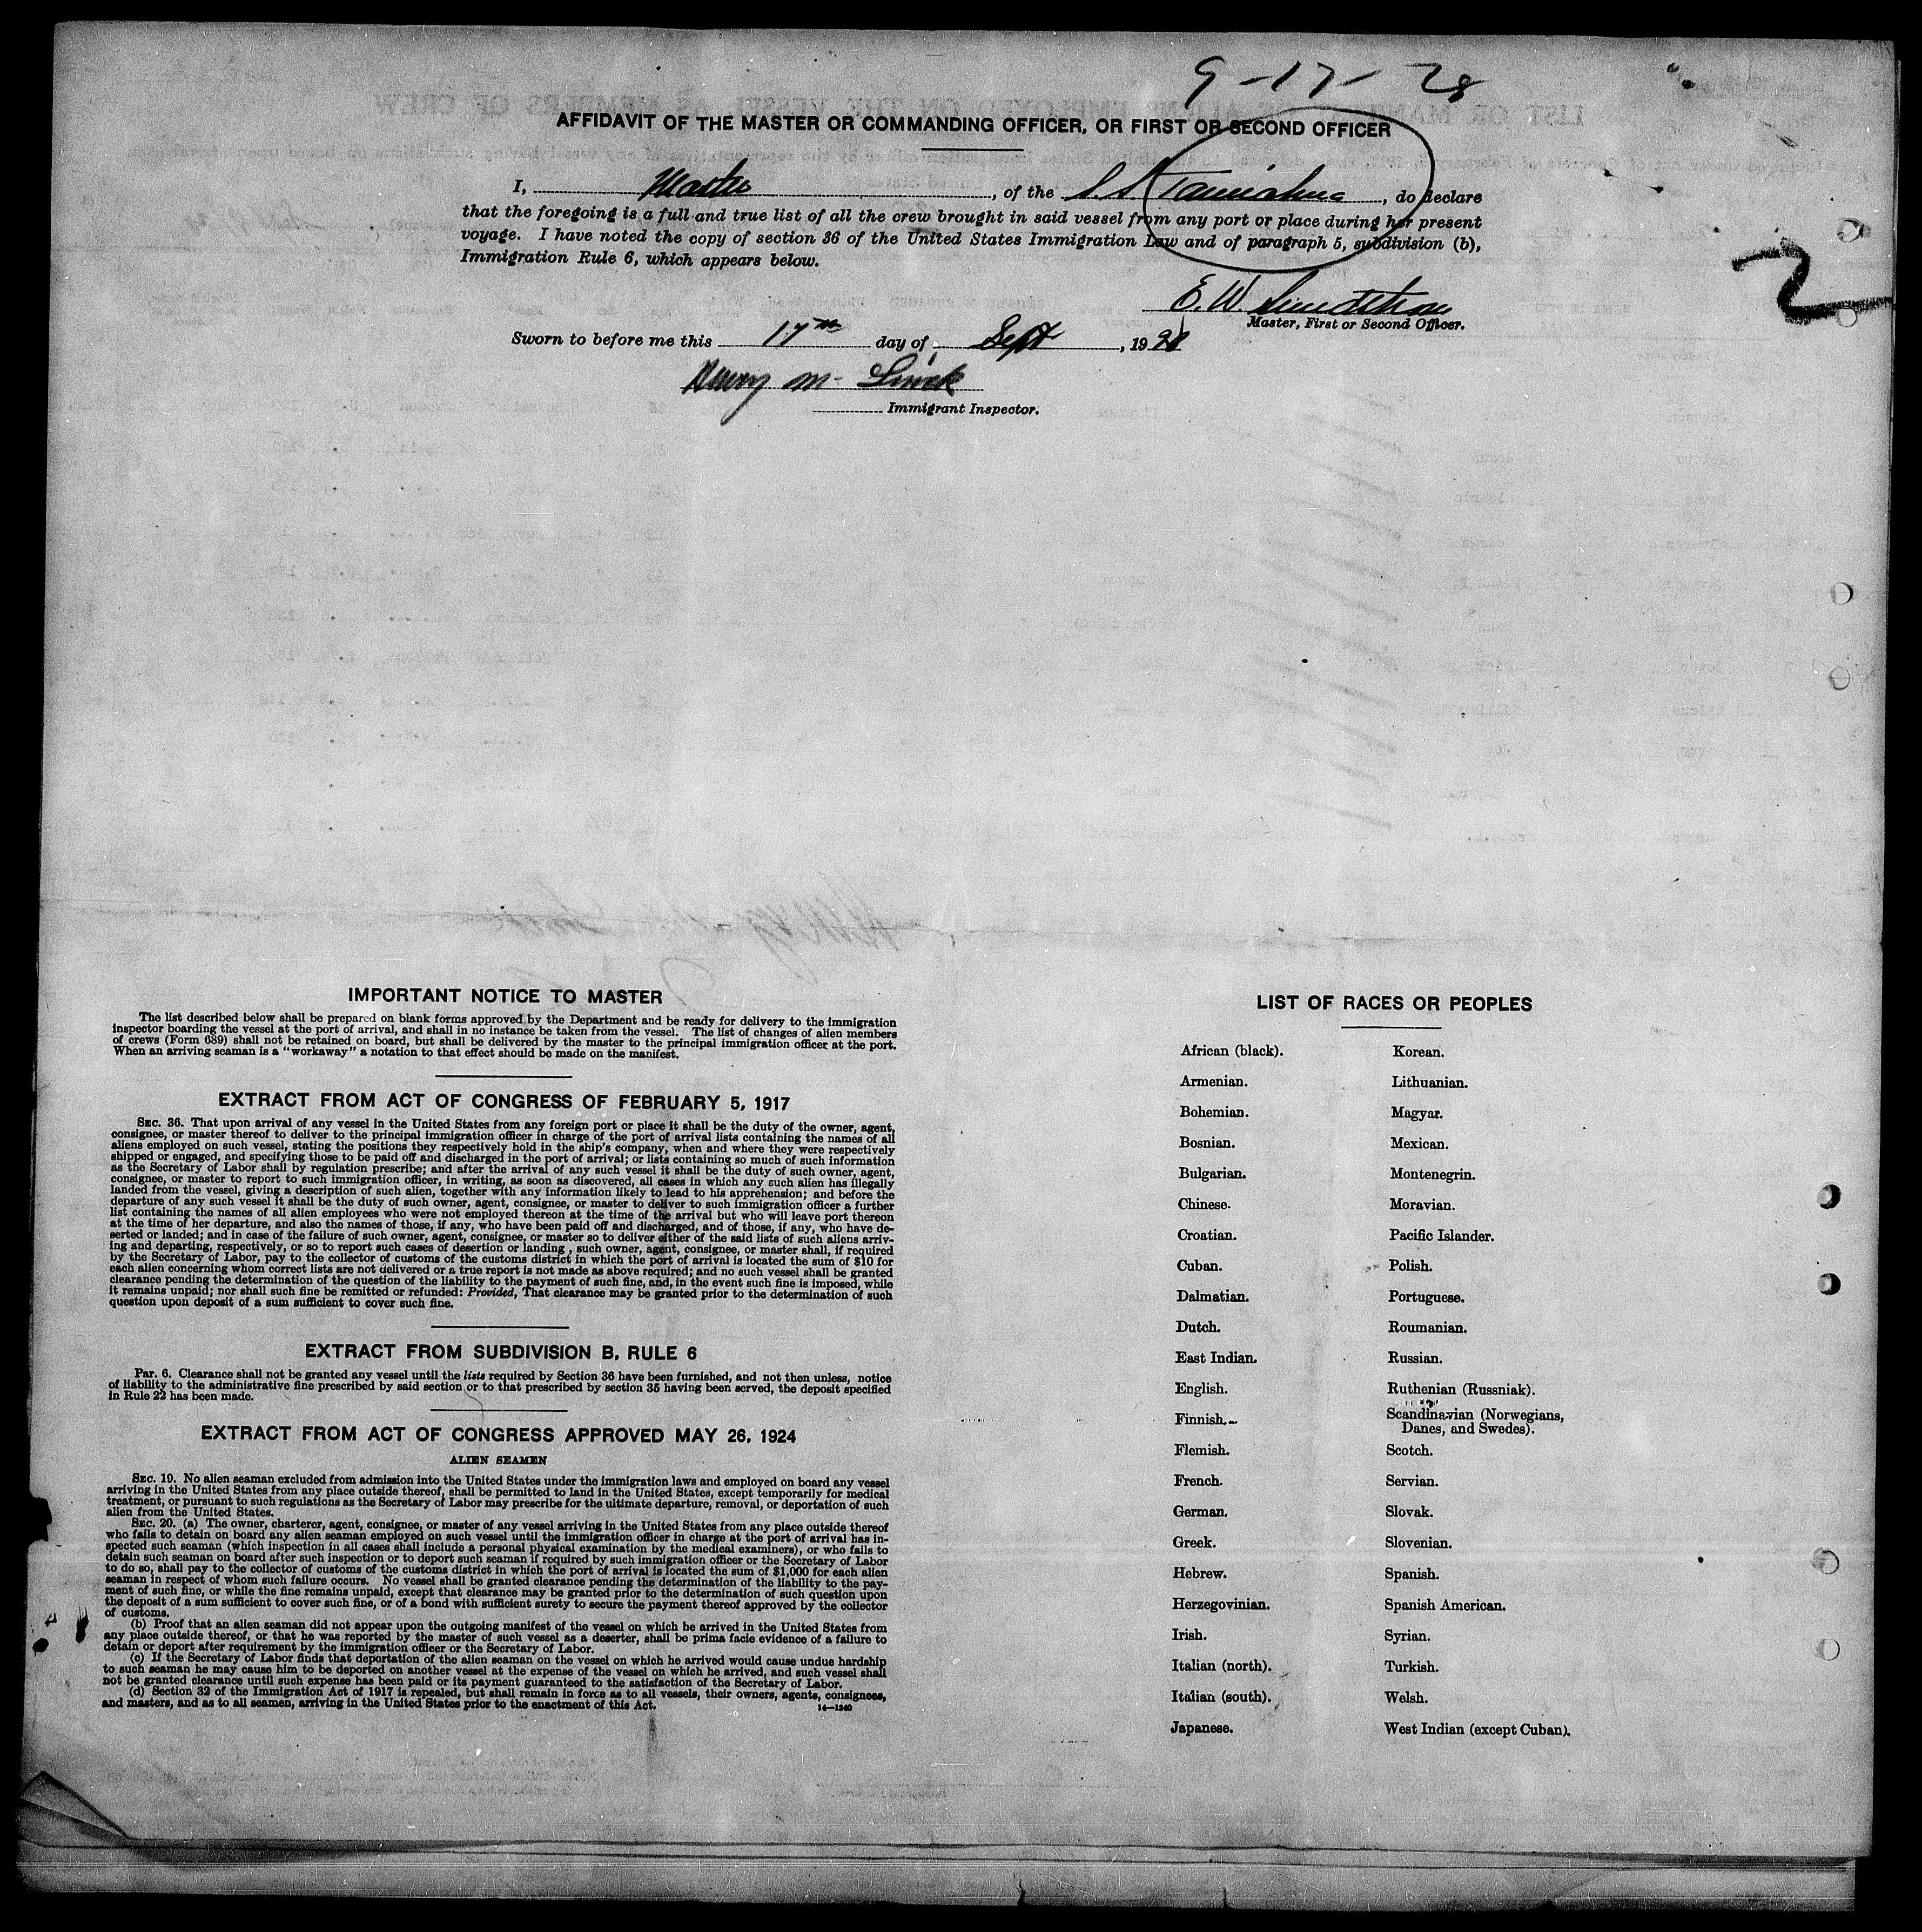 9-17-28
AFFIDAVIT OF THE MASTER OR COMMANDING OFFICER, OR FIRST OR SECOND OFFICER
I, Master, of the S.S. Tamiahua, do declare
that the foregoing is a full and true list of all the crew brought in said vessel from any port or place during her present
voyage. I have noted the copy of section 36 of the United States Immigration Law and of paragraph 5, subdivision (b),
Immigration Rule 6, which appears below.
2
E. W.
Master, First or Second Officer.
Sworn to before me this 17th day of Sept, 1928
Henry M.
Immigrant Inspector.
IMPORTANT NOTICE TO MASTER
The list described below shall be prepared on blank forms approved by the Department and be ready for delivery to the immigration
inspector boarding the vessel at the port of arrival, and shall in no instance be taken from the vessel. The list of changes of alien members
of crews (Form 689) shall not be retained on board, but shall be delivered by the master to the principal immigration officer at the port.
When an arriving seaman is a "workaway" a notation to that effect should be made on the manifest.
EXTRACT FROM ACT OF CONGRESS OF FEBRUARY 5, 1917
SEC. 36. That upon arrival of any vessel in the United States from any foreign port or place it shall be the duty of the owner, agent,
consignee, or master thereof to deliver to the principal immigration officer in charge of the port of arrival lists containing the names of all
aliens employed on such vessel, stating the positions they respectively hold in the ship's company, when and where they were respectively
shipped or engaged, and specifying those to be paid off and discharged in the port of arrival; or lists containing so much of such information
as the Secretary of Labor shall by regulation prescribe; and after the arrival of any such vessel it shall be the duty of such owner, agent,
consignee, or master to report to such immigration officer, in writing, as soon as discovered, all cases in which any such alien has illegally
landed from the vessel, giving a description of such alien, together with any information likely to lead to his apprehension; and before the
departure of any such vessel it shall be the duty of such owner, agent, consignee, or master to deliver to such immigration officer a further
list containing the names of all alien employees who were not employed thereon at the time of the arrival but who will leave port thereon
at the time of her departure, and also the names of those, if any, who have been paid off and discharged, and of those, if any, who have de-
serted or landed; and in case of the failure of such owner, agent, consignee, or master so to deliver either of the said lists of such aliens arriv-
ing and departing, respectively, or so to report such cases of desertion or landing, such owner, agent, consignee, or master shall, if required
by the Secretary of Labor, pay to the collector of customs of the customs district in which the port of arrival is located the sum of $10 for
each alien concerning whom correct lists are not delivered or a true report is not made as above required; and no such vessel shall be granted
clearance pending the determination of the question of the liability to the payment of such fine, and, in the event such fine is imposed, while
it remains unpaid; nor shall such fine be remitted or refunded: Provided, That clearance may be granted prior to the determination of such
question upon deposit of a sum sufficient to cover such fine.
EXTRACT FROM SUBDIVISION B, RULE 6
PAR. 6. Clearance shall not be granted any vessel until the lists required by Section 36 have been furnished, and not then unless, notice
of liability to the administrative fine prescribed by said section or to that prescribed by section 35 having been served, the deposit specified
in Rule 22 has been made.
EXTRACT FROM ACT OF CONGRESS APPROVED MAY 26, 1924
ALIEN SEAMEN
SEC. 19. No alien seaman excluded from admission into the United States under the immigration laws and employed on board any vessel
arriving in the United States from any place outside thereof, shall be permitted to land in the United States, except temporarily for medical
treatment, or pursuant to such regulations as the Secretary of Labor may prescribe for the ultimate departure, removal, or deportation of such
alien from the United States.
SEC. 20. (a) The owner, charterer, agent, consignee, or master of any vessel arriving in the United States from any place outside thereof
who fails to detain on board any alien seaman employed on such vessel until the immigration officer in charge at the port of arrival has in-
spected such seaman (which inspection in all cases shall include a personal physical examination by the medical examiners), or who fails to
detain such seaman on board after such inspection or to deport such seaman if required by such immigration officer or the Secretary of Labor
to do so, shall pay to the collector of customs of the customs district in which the port of arrival is located the sum of $1,000 for each alien
seaman in respect of whom such failure occurs. No vessel shall be granted clearance pending the determination of the liability to the pay-
ment of such fine, or while the fine remains unpaid, except that clearance may be granted prior to the determination of such question upon
the deposit of a sum sufficient to cover such fine, or of a bond with sufficient surety to secure the payment thereof approved by the collector
of customs.
(b) Proof that an alien seaman did not appear upon the outgoing manifest of the vessel on which he arrived in the United States from
any place outside thereof, or that he was reported by the master of such vessel as a deserter, shall be prima facie evidence of a failure to
detain or deport after requirement by the immigration officer or the Secretary of Labor.
(c) If the Secretary of Labor finds that deportation of the alien seaman on the vessel on which he arrived would cause undue hardship
to such seaman he may cause him to be deported on another vessel at the expense of the vessel on which he arrived, and such vessel shall
not be granted clearance until such expense has been paid or its payment guaranteed to the satisfaction of the Secretary of Labor.
(d) Section 32 of the Immigration Act of 1917 is repealed, but shall remain in force as to all vessels, their owners, agents, consignees,
and masters, and as to all seamen, arriving in the United States prior to the enactment of this Act.
14—1240
LIST OF RACES OR PEOPLES
African (black).
Armenian.
Bohemian.
Bosnian.
Bulgarian.
Chinese.
Croatian.
Cuban.
Dalmatian.
Dutch.
East Indian.
English.
Finnish.
Flemish.
French.
German.
Greek.
Hebrew.
Herzegovinian.
Irish.
Italian (north).
Italian (south).
Japanese.
Korean.
Lithuanian.
Magyar.
Mexican.
Montenegrin.
Moravian.
Pacific Islander.
Polish.
Portuguese.
Roumanian.
Russian.
Ruthenian (Russniak).
Scandinavian (Norwegians,
Danes, and Swedes).
Scotch.
Servian.
Slovak.
Slovenian.
Spanish.
Spanish American.
Syrian.
Turkish.
Welsh.
West Indian (except Cuban).